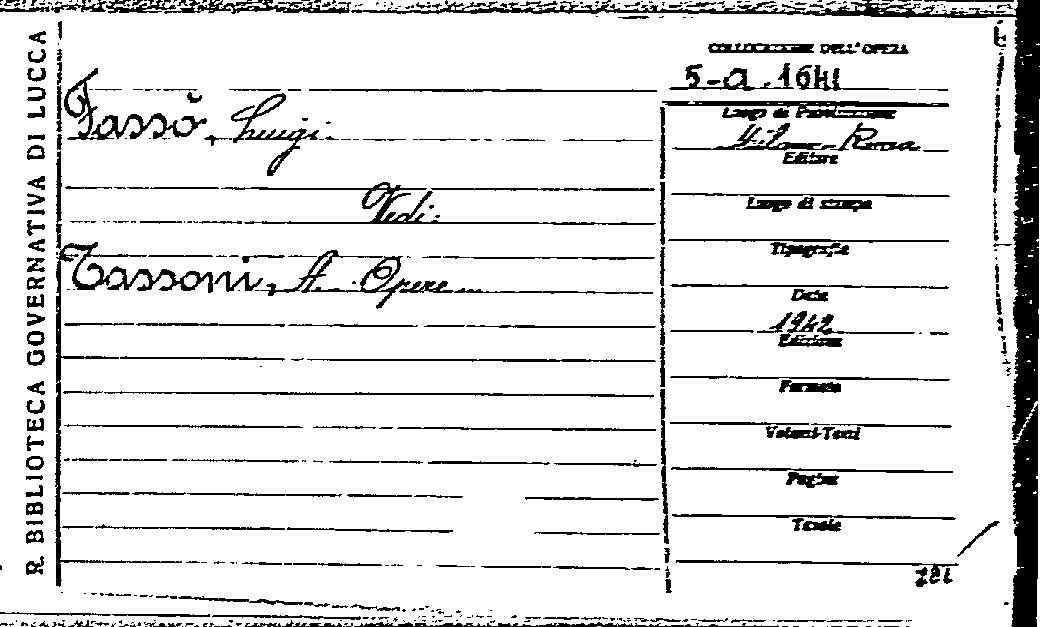 R. BIBLIOTECA GOVERNATIVA DI LUCCA
Fassò, Luigi.
Vedi:
Tassoni, A. Opere
COLLOCAZIONE DELL'OPERA
5-a.1641
Luogo di Pubblicazione
Milano-Roma
Editore
Luogo di stampa
Tipografia
Data
1942
Edizione
Formato
Volumi-Tomi
Pagine
Tavole